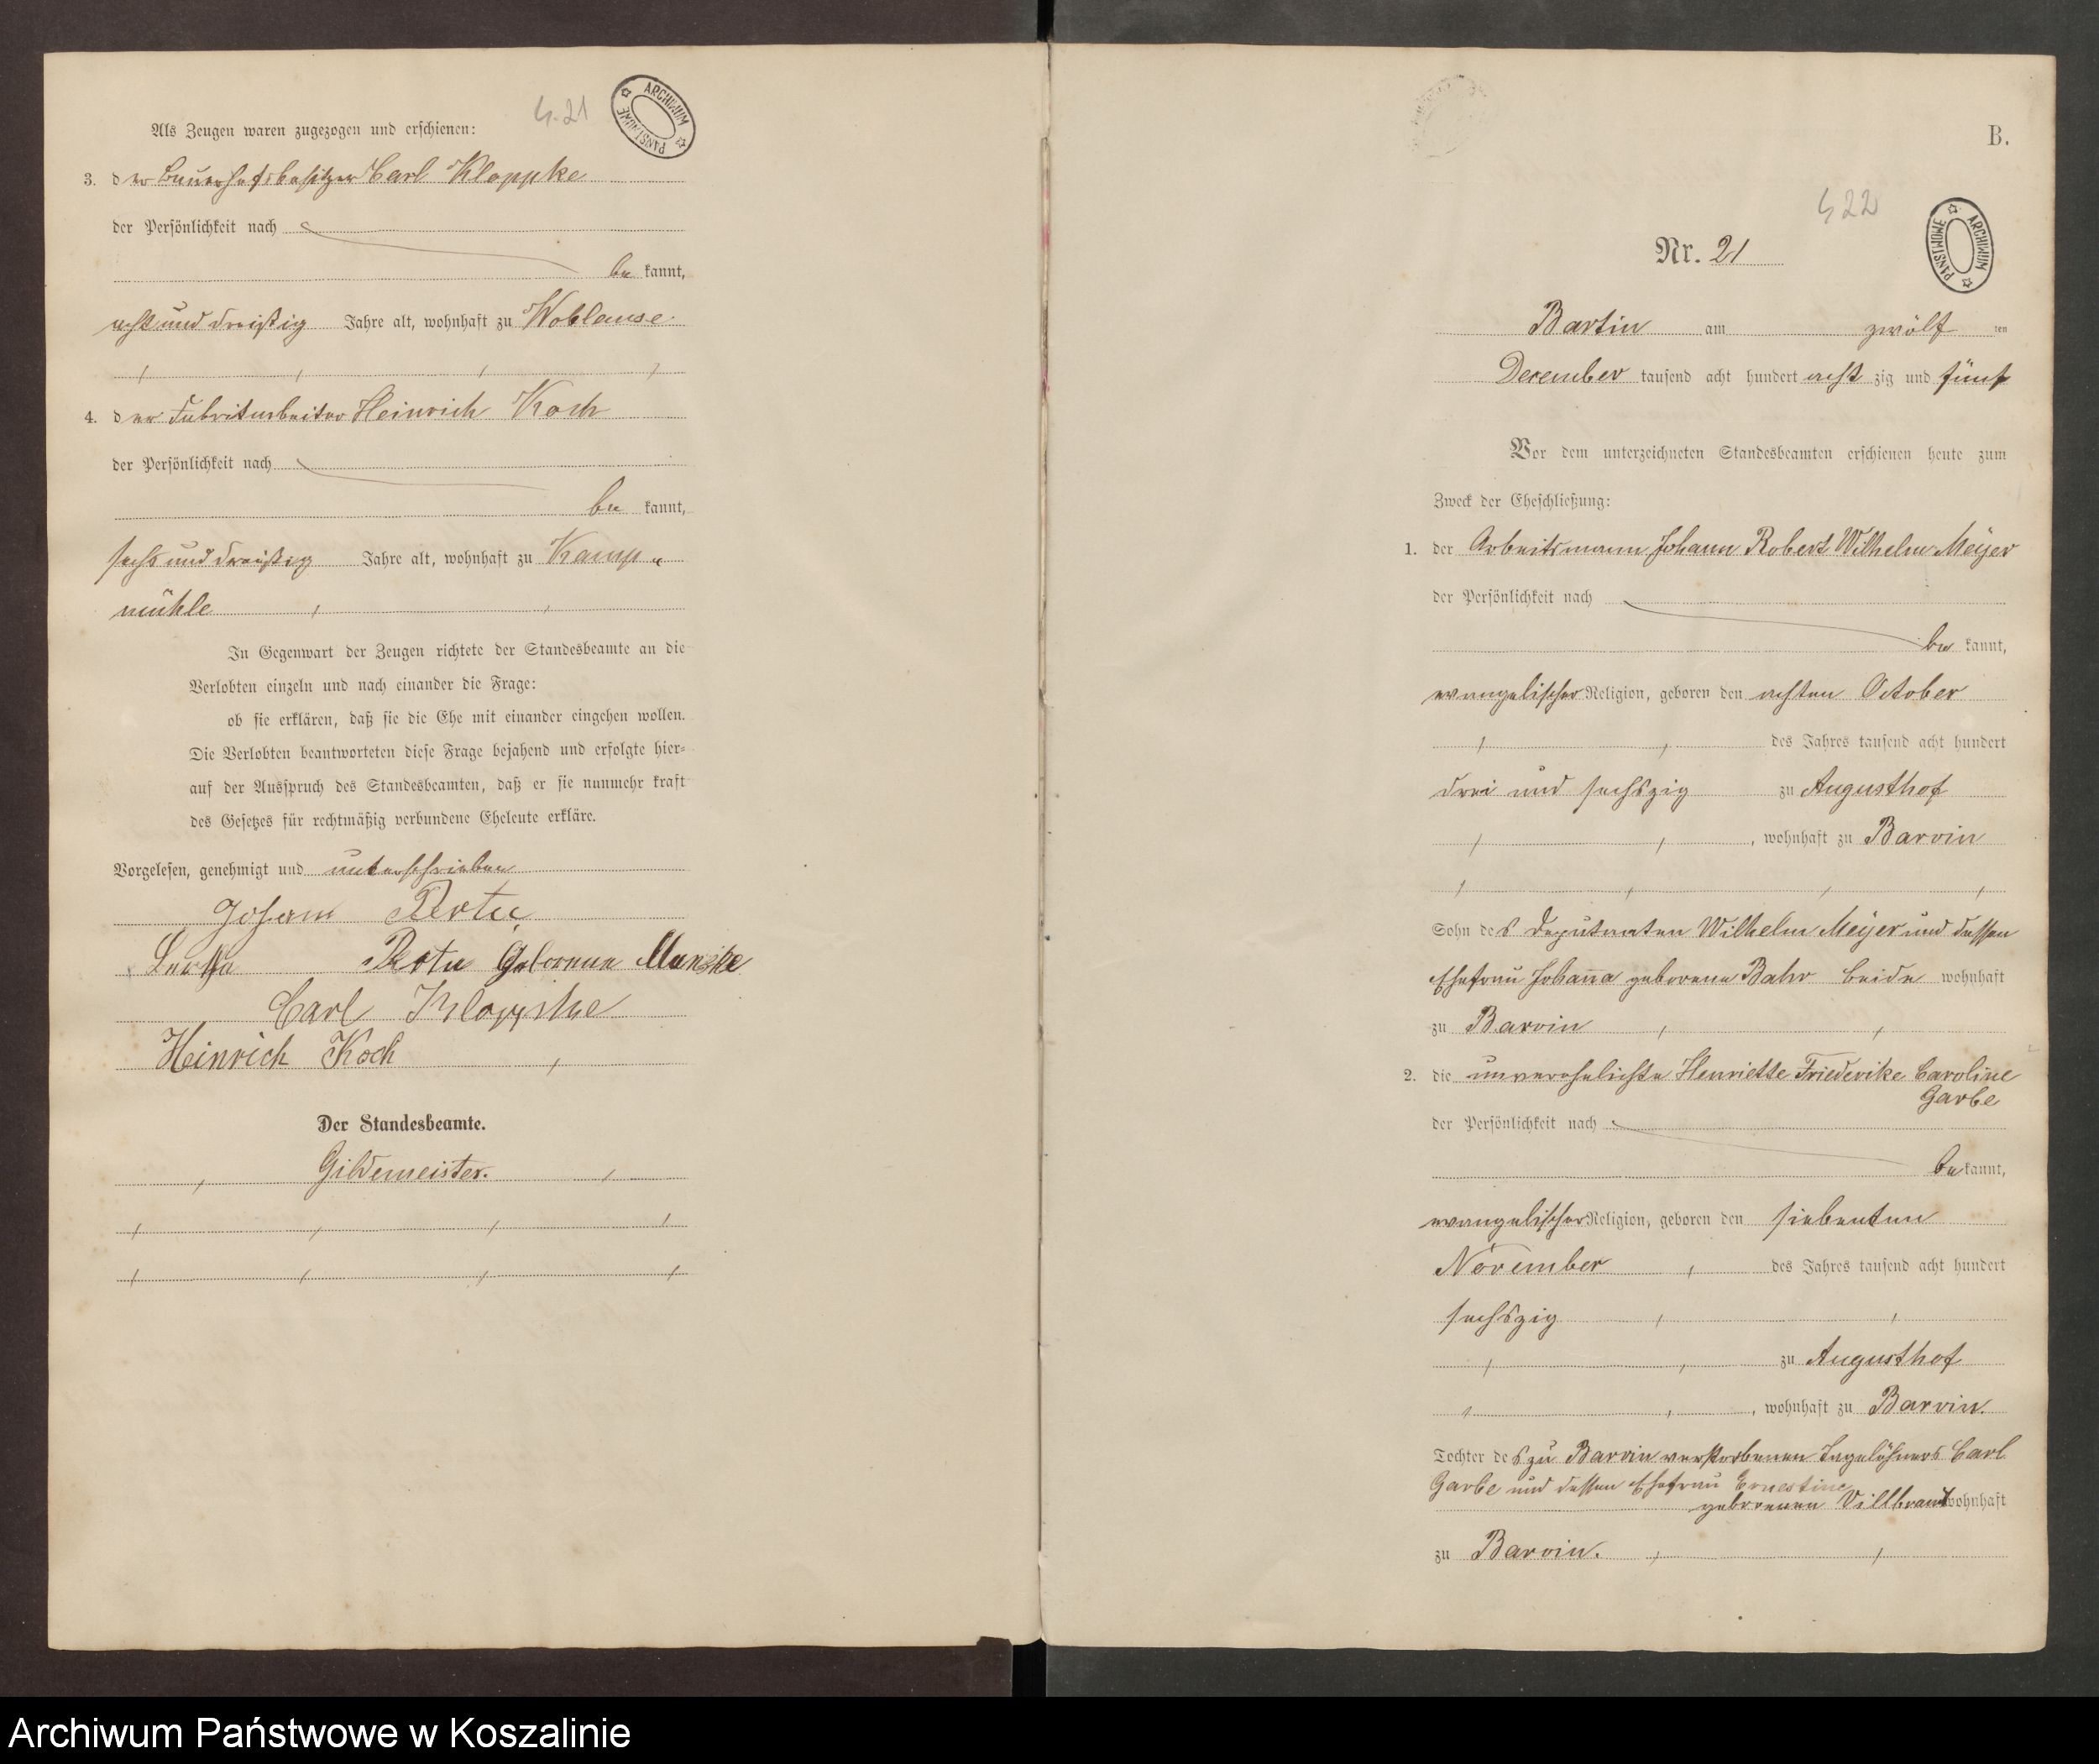 4.21
ARCHIWUM PAŃSTWOWE
Als Zeugen waren zugezogen und erschienen:
3. der Bauerhofsbesitzer Carl Kloppke
der Persönlichkeit nach
be kannt,
acht und dreißig Jahre alt, wohnhaft zu Woblanse
4. der Fabrikarbeiter Heinrich Koch
der Persönlichkeit nach
be kannt,
sechs und dreißig Jahre alt, wohnhaft zu Kamp„
mühle
In Gegenwart der Zeugen richtete der Standesbeamte an die
Verlobten einzeln und nach einander die Frage:
ob sie erklären, daß sie die Ehe mit einander eingehen wollen.
Die Verlobten beantworteten diese Frage bejahend und erfolgte hier-
auf der Ausspruch des Standesbeamten, daß er sie nunmehr kraft
des Gesetzes für rechtmäßig verbundene Eheleute erkläre.
Vorgelesen, genehmigt und unterschrieben
Johann
geborene Manzke
Carl Kloppke
Heinrich Koch
Der Standesbeamte.
Gildemeister.
B.
422
ARCHIWUM PAŃSTWOWE
Nr. 21
Bartin am zwölf ten
December tausend acht hundert acht zig und fünf
Vor dem unterzeichneten Standesbeamten erschienen heute zum
Zweck der Eheschließung:
1. der Arbeitsmann Johann Robert Wilhelm Meyer
der Persönlichkeit nach
be kannt,
evangelischer Religion, geboren den achten October
des Jahres tausend acht hundert
drei und sechszig zu Augusthof
, wohnhaft zu Barvin
Sohn des Deputanten Wilhelm Meyer und dessen
Ehefrau Johanna geborene Bahr beide wohnhaft
zu Barvin
2. die unverehelichte Henriette Friederike Caroline
Garbe
der Persönlichkeit nach
be kannt,
evangelischer Religion, geboren den siebenten
November des Jahres tausend acht hundert
sechszig
zu Augusthof
, wohnhaft zu Barvin.
Tochter des zu Barvin verstorbenen Tagelöhners Carl
Garbe und dessen Ehefrau Ernestine
geborenen Villbrandt wohnhaft
zu Barvin.
Archiwum Państwowe w Koszalinie